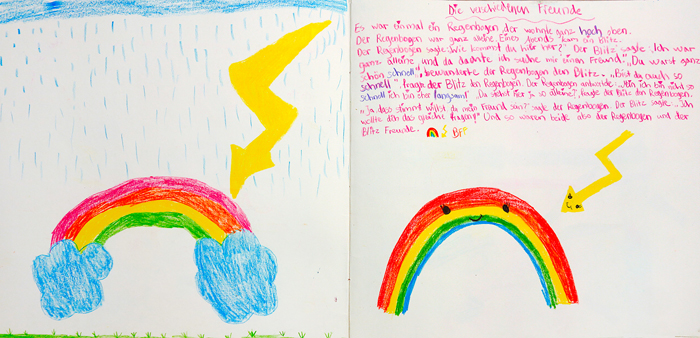 Die verschiedenen Freunde
Es war einmal ein Regenbogen der wohnte ganz hoch oben.
Der Regenbogen war ganz alleine. Eines Abends kam ein Blitz.
Der Regenbogen sagte: „Wie kommst du hier her?" Der Blitz sagte: „Ich war
ganz alleine und da dachte ich suche mir einen Freund." „Du warst ganz
schön schnell", bewunderte der Regenbogen den Blitz. „Bist du auch so
schnell", fragte der Blitz den Regenbogen. Der Regenbogen antwortete: „Nein ich bin nicht so
schnell ich bin eher langsam." „Du siehst hier ja so alleine", fragte der Blitz den Regenbogen.
„Ja das stimmt willst du mein Freund sein?" sagte der Regenbogen. Der Blitz sagte: „Ich
wollte dich das gleiche fragen." Und so waren beide also der Regenbogen und der
Blitz Freunde. BFF